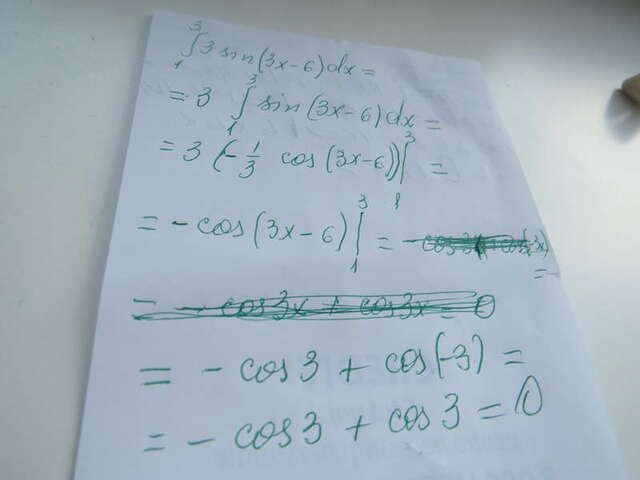 ∫₁³ 3 sin(3x-6)dx =
= 3 ∫₁³ sin(3x-6)dx =
= 3 (-1/3 cos(3x-6))|₁³ =
= -cos(3x-6)|₁³ =
= - cos3x + cos3x = 0
= - cos3 + cos(-3) =
= - cos3 + cos3 = 0